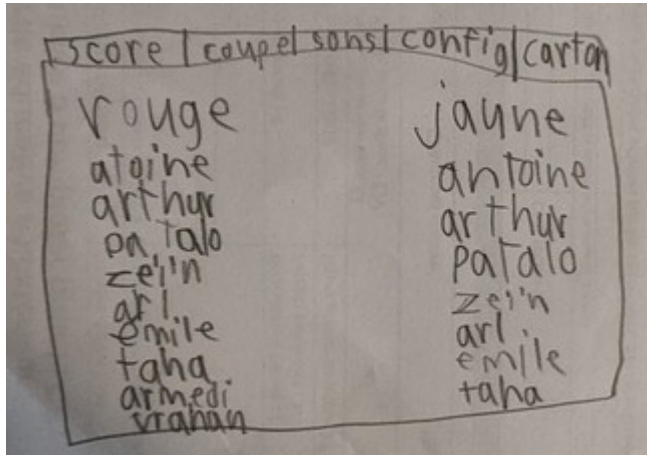 score | coupe | sons | config | carton
rouge
atoine
arthur
patalo
zeiin
arl
emile
taha
armedi
vrahan
jaune
antoine
arthur
patalo
zein
arl
emile
taha